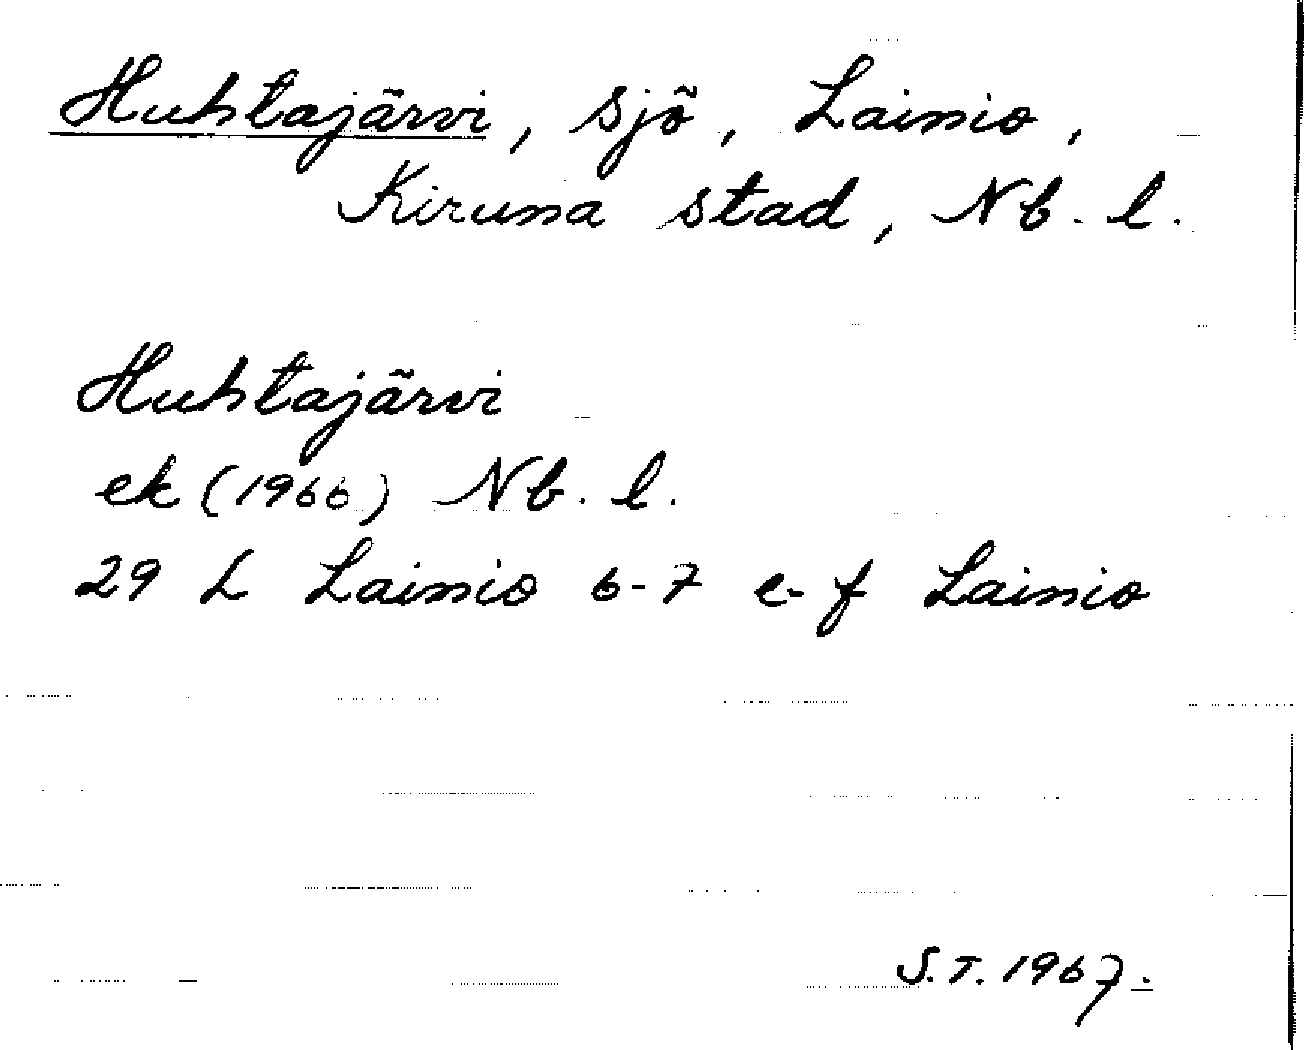 Huhtajärvi, sjö, Lainio,
Kiruna stad, Nb. l.
Huhtajärvi
ek (1966) Nb. l.
29 L Lainio 6-7 e-f Lainio
S.T. 1967.